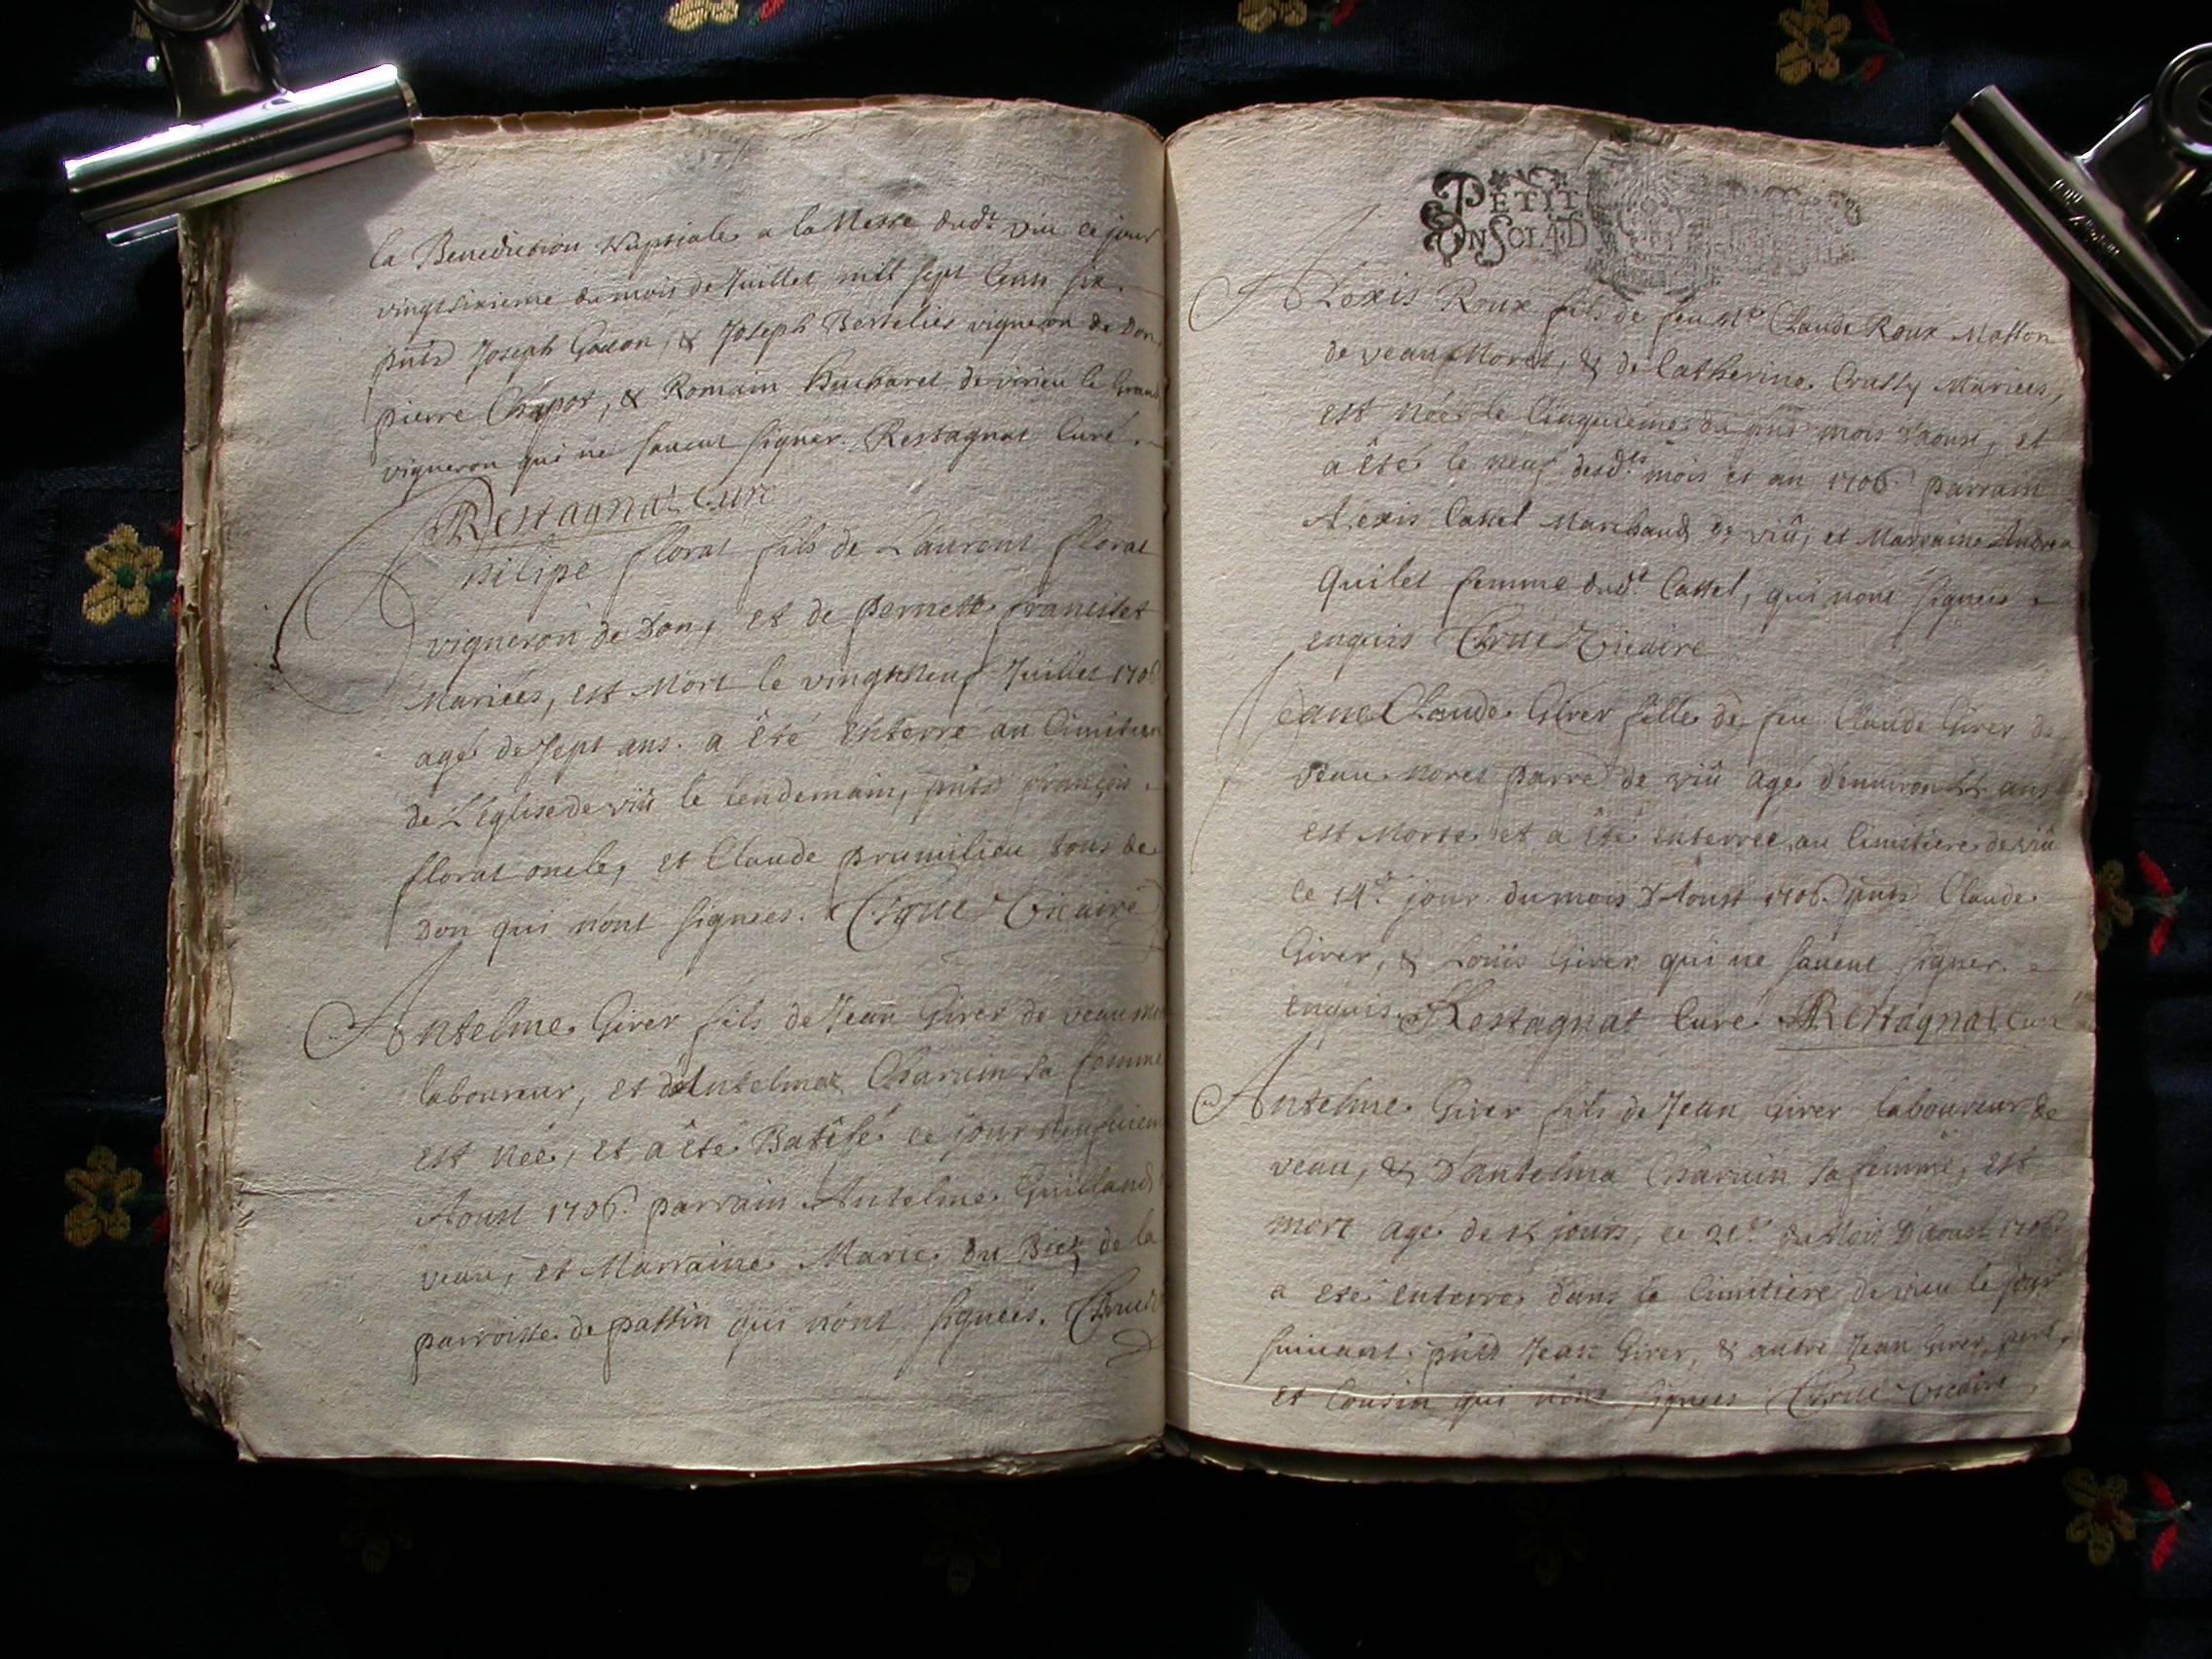 la Benediction Nuptiale a la Messe dudt. viu ce jour
vingtsixieme du mois de Juillet mill sept Cent six.
pnts Joseph Gacon, & Joseph Bertelier vigneron de Don
pierre Chapot, & Romain hucharet de virieu le Grand
vigneron qui ne sauent signer. Restagnat Curé.
Restagnat Curé
Philipe florat fils de Laurent florat
vigneron de Don, et de pernette francillet
Mariées, est Mort le vingtneuf Juillet 1706
agé de sept ans. a êté enterré au Cimitiere
de L'Eglise de viû le lendemain, pnts françois
florat oncle, et Claude prumilieu tous de
Don qui n'ont signées. Vicaire
Antelme Girer fils de Jean Girer de veau
laboureur, et d'Antelma Charuin sa femme
est née, et a êté Batisé ce jour
Aoust 1706. parrain Antelme Guilland
veau, et Marraine Marie du Biez de la
parroisse de passin qui n'ont signées.
PETIT
ON SOL 4 D
Alexis Roux fils de feu Me Claude Roux Masson
de veau Moret, & de Catherine Crussy Mariées,
est née le Cinquieme du pnt mois d'aoust, et
a êté le neuf desdts. mois et an 1706 parrain
Alexis Cattel Marchand de viû, et Marraine Andrea
Quilet femme dudt. Cattel, qui n'ont signées
enquis Vicaire
Jeane Claude Girer fille de feu Claude Girer de
veau Moret parre. de viû agé d'enuiron ans
est Morte et a êté enterree au Cimitiere de viû
ce 14e. jour du mois d'Aoust 1706. pnts Claude
Girer, & Loüis Girer qui ne sauent signer.
enquis. Restagnat Curé. Restagnat Curé
Antelme Girer fils de Jean Girer laboureur de
veau, & d'antelma Charuin sa femme, est
mort agé de jours, ce du Mois D'aoust 1706.
a eté enterré dans le Cimitiere de vieu le jour
suiuant. pnts Jean Girer, & autre Jean Girer,
et Cousin qui n'ont signées Vicaire